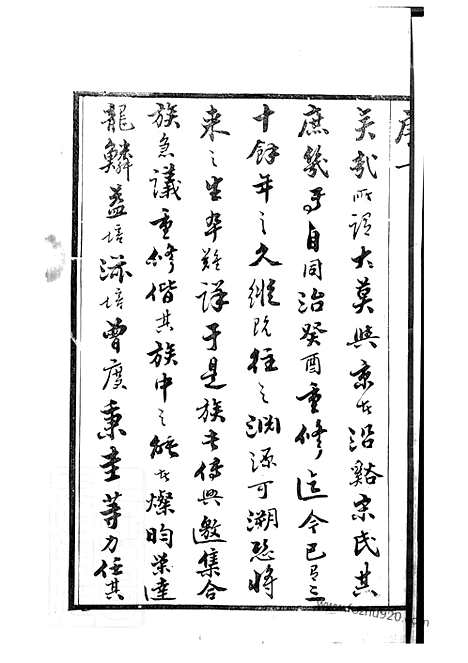 序一
吳郡所謂大莫與京者沿谿宗氏其
庶幾乎自同治癸酉重修迄今已有三
十餘年之久縱既往之淵源可溯恐將
來之生卒難詳于是族長傳興邀集合
族急議重修偕其族中之能者燦昀榮達
龍鱗益培添培曾度秉圭等力任其